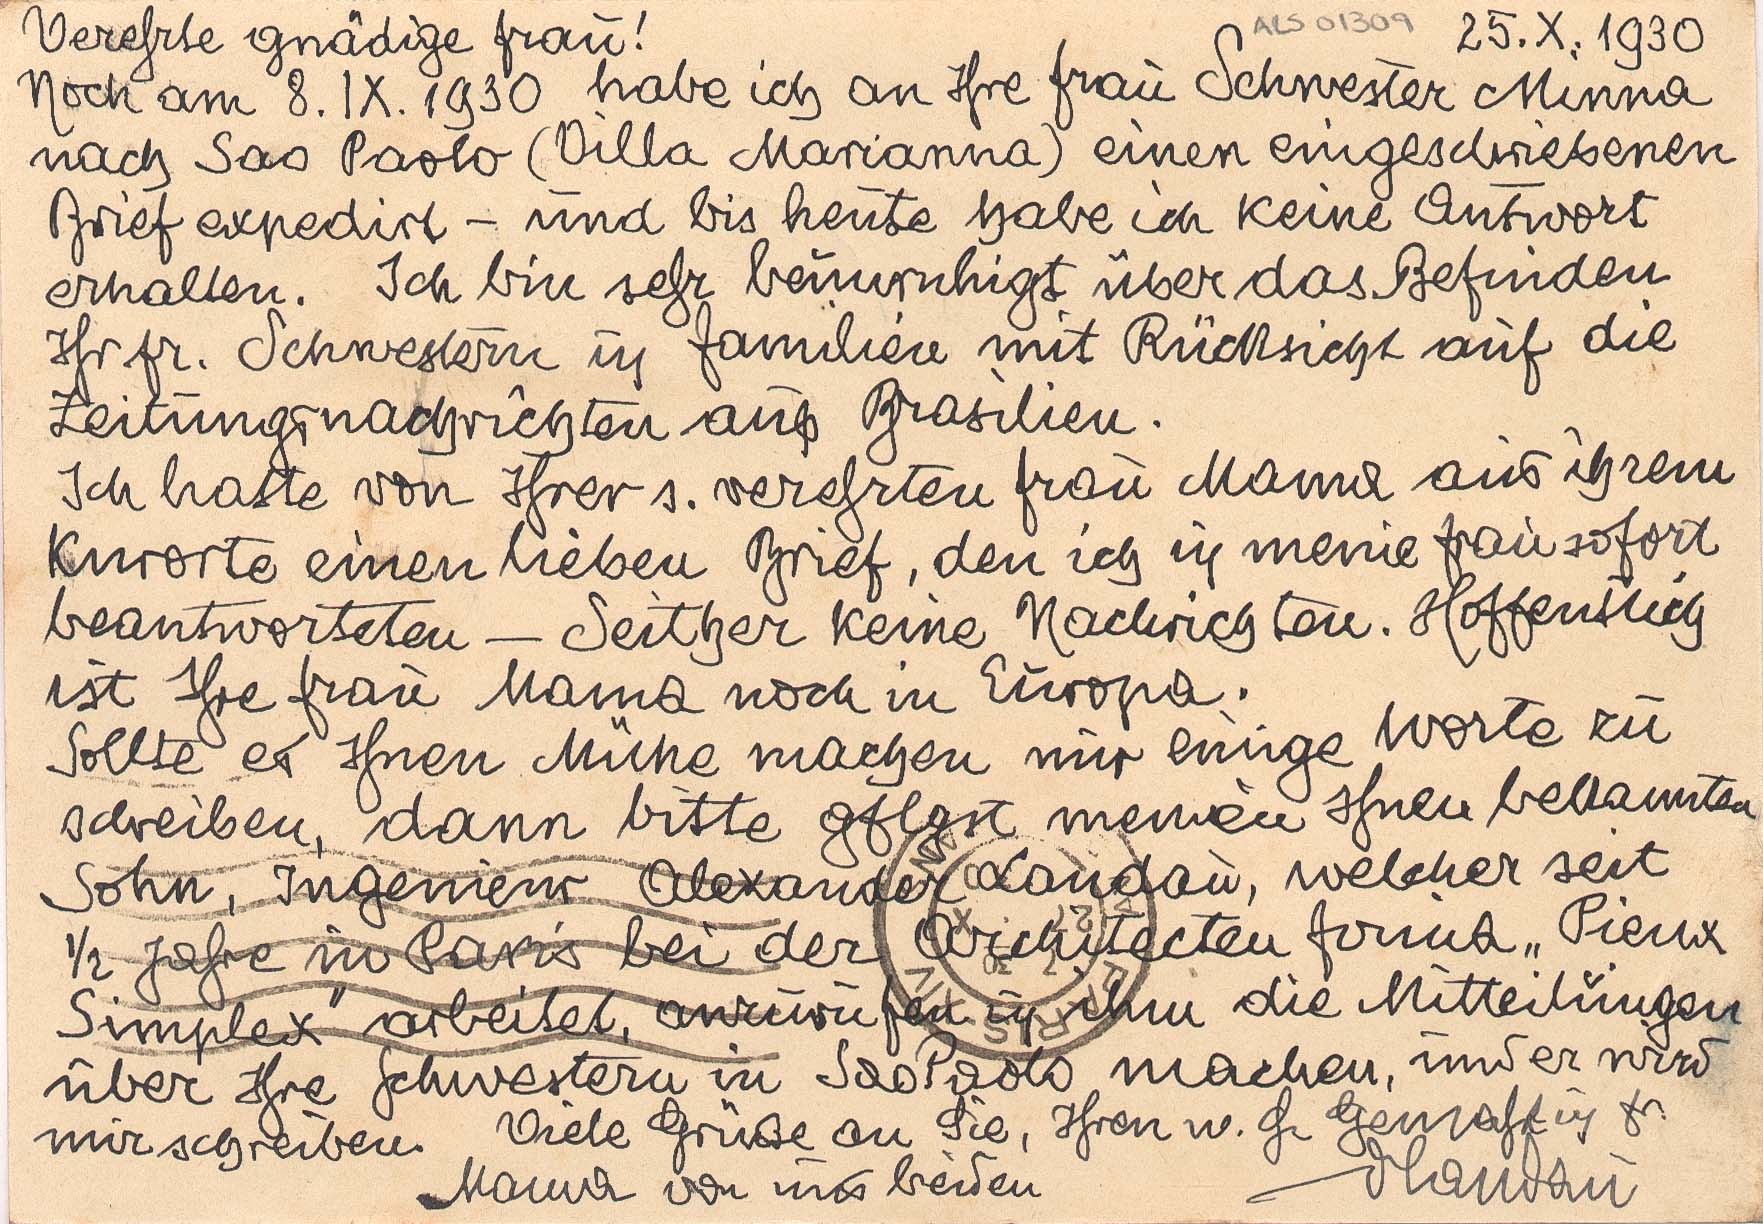 ALS 01309
Verehrte gnädige Frau! 25. X. 1930
Noch am 8. IX. 1930 habe ich an Ihre Frau Schwester Minna
nach Sao Paolo (Villa Marianna) einen eingeschriebenen
Brief expedirt – und bis heute habe ich keine Antwort
erhalten. Ich bin sehr beunruhigt über das Befinden
Ihr fr. Schwestern u Familien mit Rücksicht auf die
Zeitungsnachrichten aus Brasilien.
Ich hatte von Ihrer s. verehrten Frau Mama aus ihrem
Kurorte einen lieben Brief, den ich u meine Frau sofort
beantworteten – Seither keine Nachrichten. Hoffentlich
ist Ihre Frau Mama noch in Europa.
Sollte es Ihnen Mühe machen mir einige Worte zu
schreiben, dann bitte gflgst meinen Ihnen bekannten
Sohn, Ingenieur Alexander Landau, welcher seit
1/2 Jahre in Paris bei der Architecten firma „Pieux
Simplex" arbeitet, anzurufen u ihm die Mitteilungen
über Ihre Schwestern in Sao Paolo machen, und er wird
mir schreiben. Viele Grüße an Sie, Ihren w. H. Gemahl u fr.
Mama von uns beiden Landau